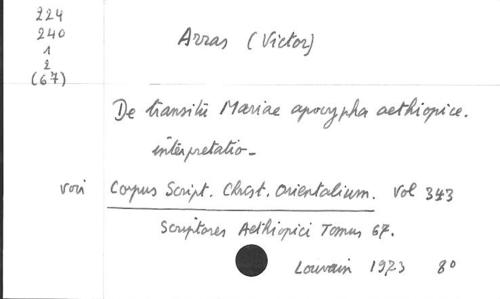 224
240
1
2
(67)
Arras (Victor)
De transitu Mariae apocrypha aethiopice.
interpretatio -
voir Corpus Script. Christ. Orientalium. Vol 343
Scriptores Aethiopici Tomus 67.
Louvain 1973 8o